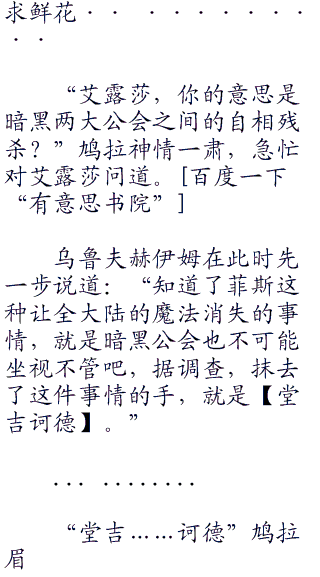 求鲜花·· ········
··
“艾露莎，你的意思是
暗黑两大公会之间的自相残
杀？”鸠拉神情一肃，急忙
对艾露莎问道。[百度一下
“有意思书院”]
乌鲁夫赫伊姆在此时先
一步说道：“知道了菲斯这
种让全大陆的魔法消失的事
情，就是暗黑公会也不可能
坐视不管吧，据调查，抹去
了这件事情的手，就是【堂
吉诃德】。”
... ........
“堂吉……诃德”鸠拉
眉